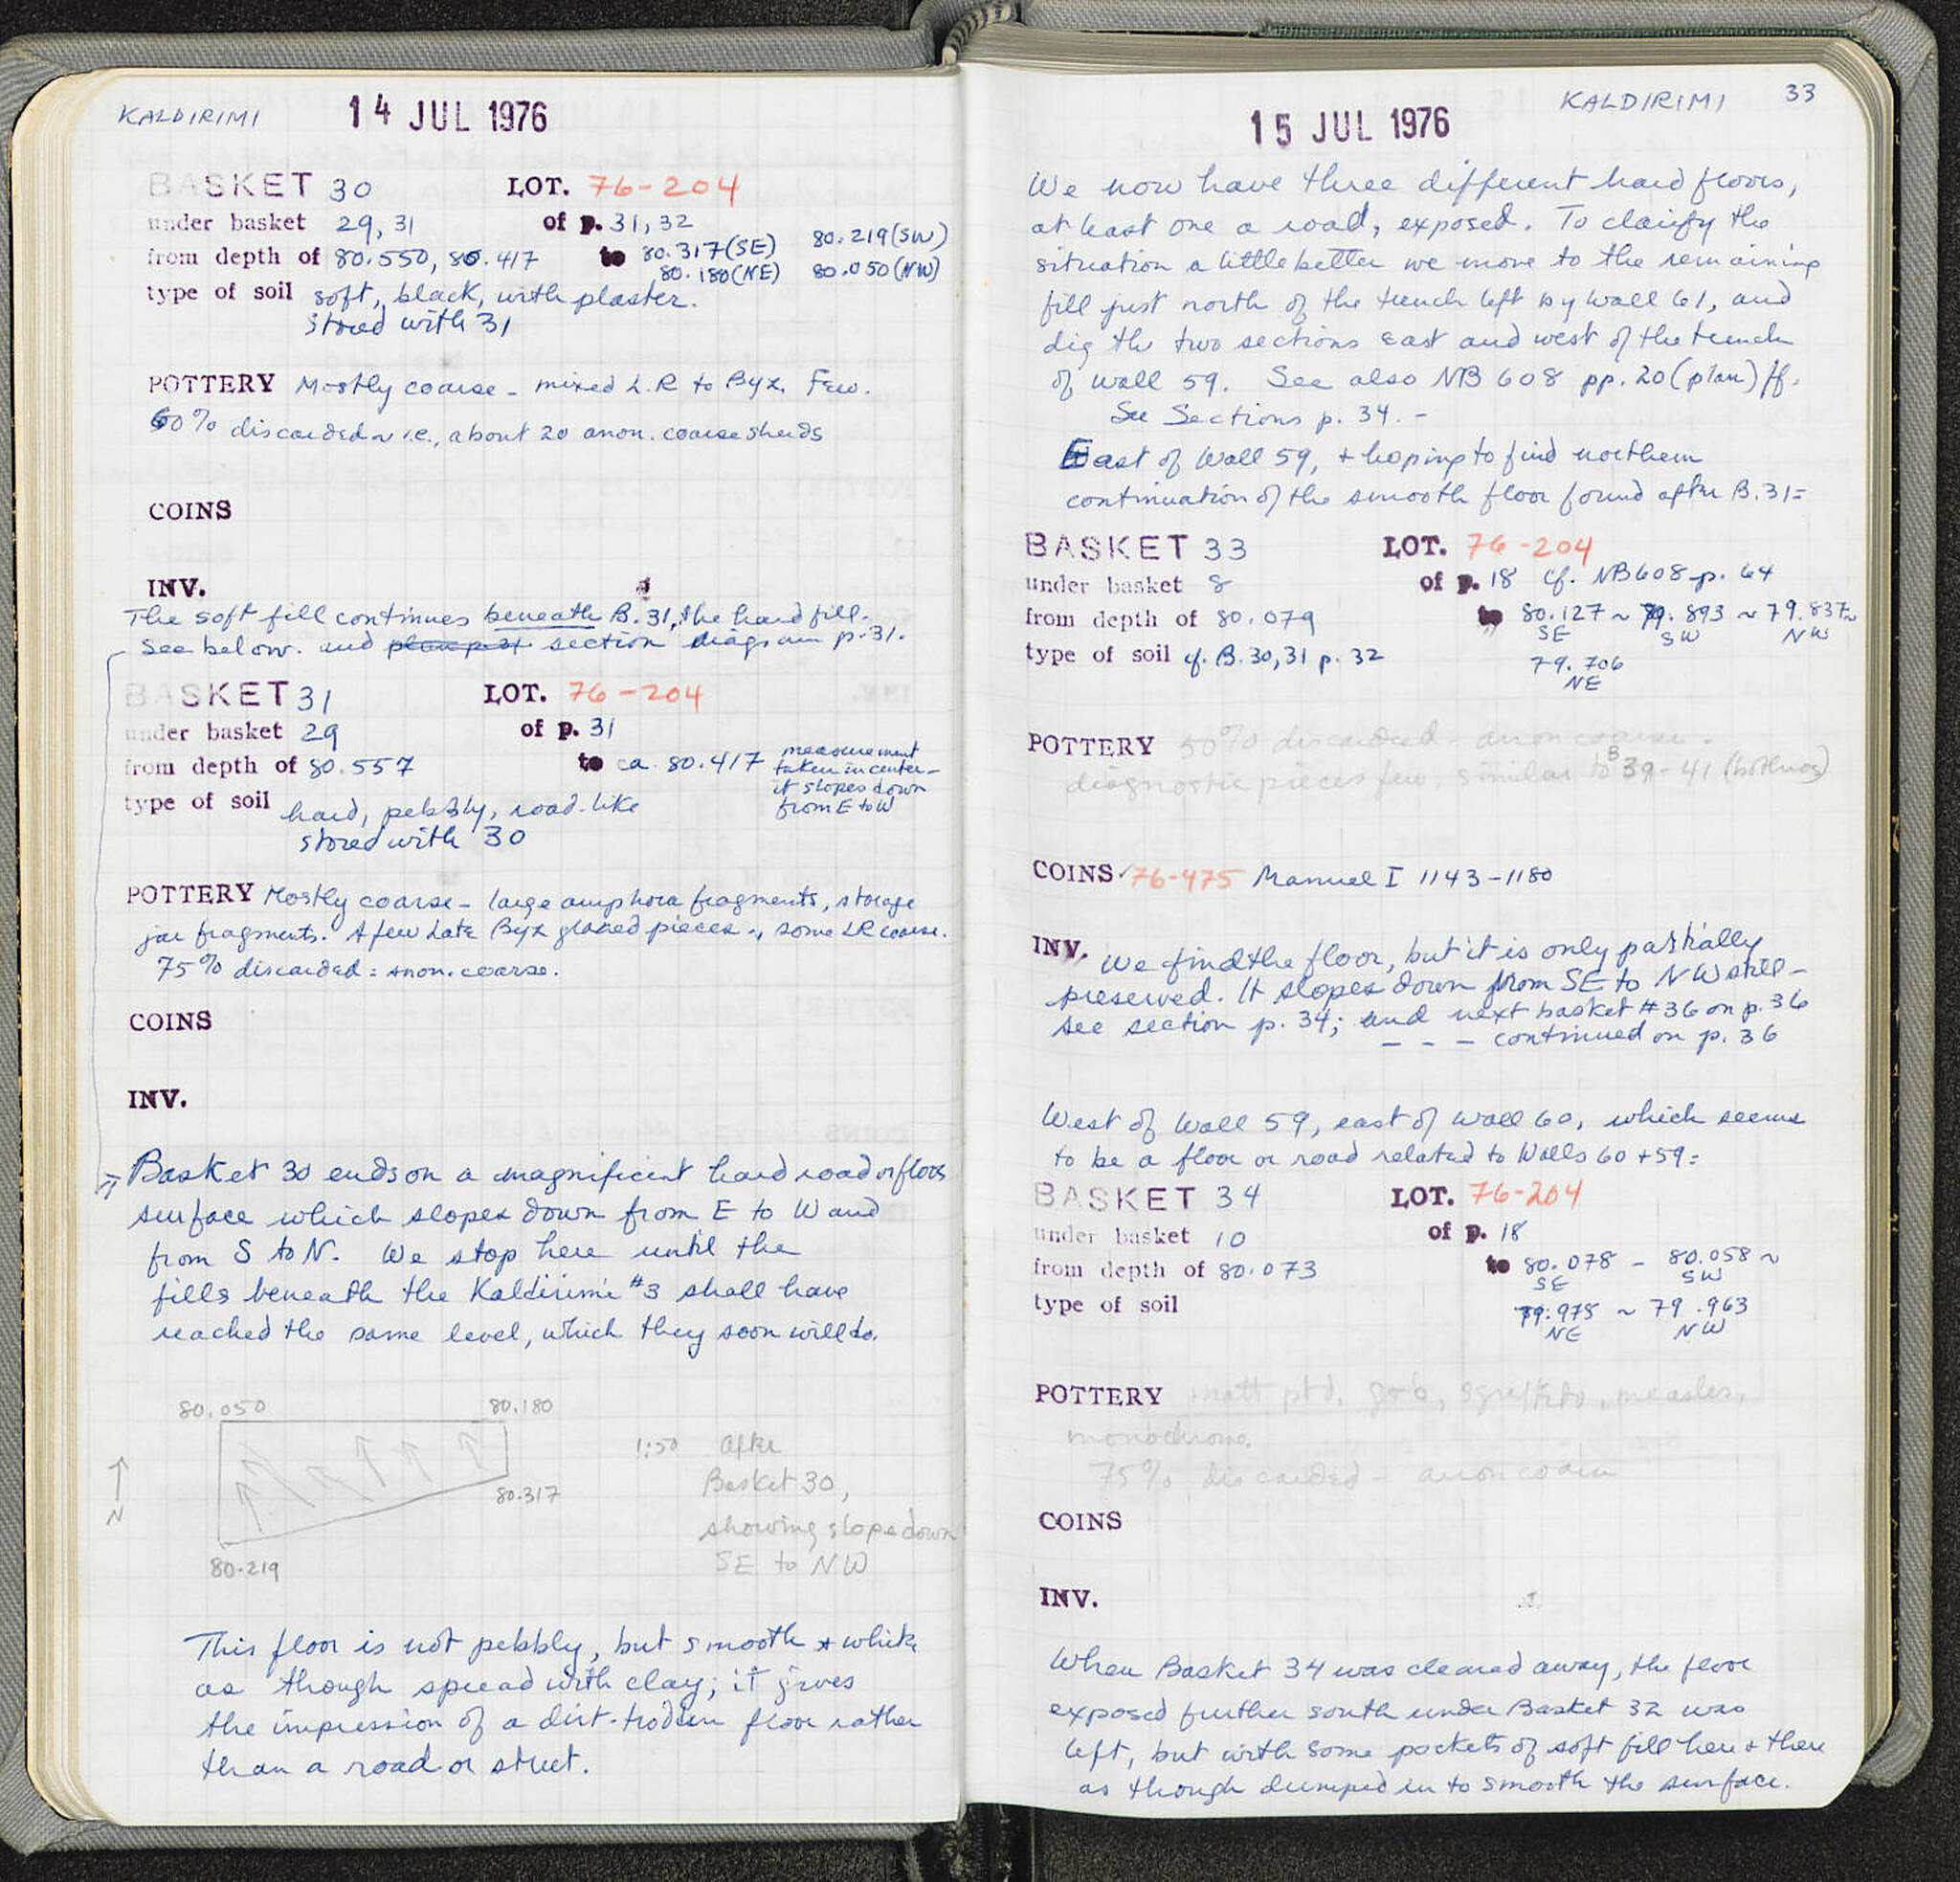 KALDIRIMI 14 JUL 1976
BASKET 30 LOT. 76-204
under basket 29, 31 of p. 31, 32
from depth of 80.550, 80.417 to 80.317(SE) 80.219(SW)
80.180(NE) 80.050(NW)
type of soil soft, black, with plaster.
stored with 31
POTTERY Mostly coarse - mixed L.R to Byz. Few.
60% discarded ~ i.e., about 20 anon. coarse sherds
COINS
INV.
The soft fill continues beneath B.31, the hard fill.
See below. and section diagram p. 31.
BASKET 31 LOT. 76-204
under basket 29 of p. 31
from depth of 80.557 to ca. 80.417 measurement
taken in center -
it slopes down
from E to W
type of soil hard, pebbly, road-like
stored with 30
POTTERY Mostly coarse - large amphora fragments, storage
jar fragments. A few Late Byz glazed pieces, some LR coarse.
75% discarded = anon. coarse.
COINS
INV.
Basket 30 ends on a magnificent hard road or floor
surface which slopes down from E to W and
from S to N. We stop here until the
fills beneath the Kaldirimi #3 shall have
reached the same level, which they soon will do.
80.050 80.180
1:50 After
Basket 30,
showing slope down
SE to NW
80.317
N
80.219
This floor is not pebbly, but smooth + white
as though spread with clay; it gives
the impression of a dirt-trodden floor rather
than a road or street.
15 JUL 1976 KALDIRIMI 33
We now have three different hard floors,
at least one a road, exposed. To clarify the
situation a little better we move to the remaining
fill just north of the trench left by Wall 61, and
dig the two sections east and west of the trench
of Wall 59. See also NB 608 pp. 20 (plan) ff.
See Sections p. 34. -
East of Wall 59, + hoping to find northern
continuation of the smooth floor found after B.31=
BASKET 33 LOT. 76-204
under basket 8 of p. 18 cf. NB608 p. 64
from depth of 80.079 to 80.127 ~ 79.893 ~ 79.837~
SE SW NW
type of soil cf. B.30, 31 p. 32 79.706
NE
POTTERY 50% discarded - anon coarse.
diagnostic pieces few, similar to B 39-41 (bothros)
COINS ✓ 76-475 Manuel I 1143-1180
INV. We find the floor, but it is only partially
preserved. It slopes down from SE to NW still -
see section p. 34; and next basket #36 on p. 36
- - - continued on p. 36
West of Wall 59, east of Wall 60, which seems
to be a floor or road related to Walls 60 + 59:
BASKET 34 LOT. 76-204
under basket 10 of p. 18
from depth of 80.073 to 80.078 - 80.058 ~
SE SW
type of soil 79.978 ~ 79.963
NE NW
POTTERY matt ptd. g&b, sgraffito, measles,
monochrome.
75% discarded - anon coarse
COINS
INV.
When Basket 34 was cleared away, the floor
exposed further south under Basket 32 was
left, but with some pockets of soft fill here + there
as though dumped in to smooth the surface.